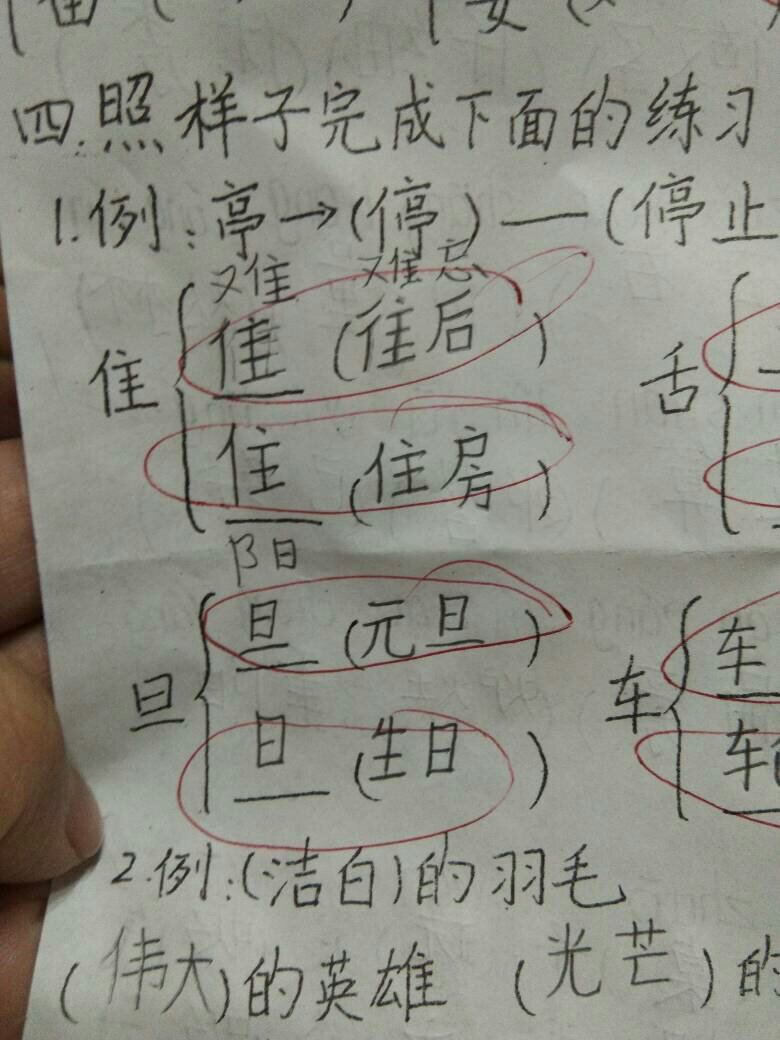 四.照样子完成下面的练习
1.例:亭→(停)—(停止
难 难忘
隹 往 (往后)
住 (住房)
阳
旦 旦 (元旦)
日 (生日)
舌
车 车
车
2.例:(洁白)的羽毛
(伟大)的英雄 (光芒)的